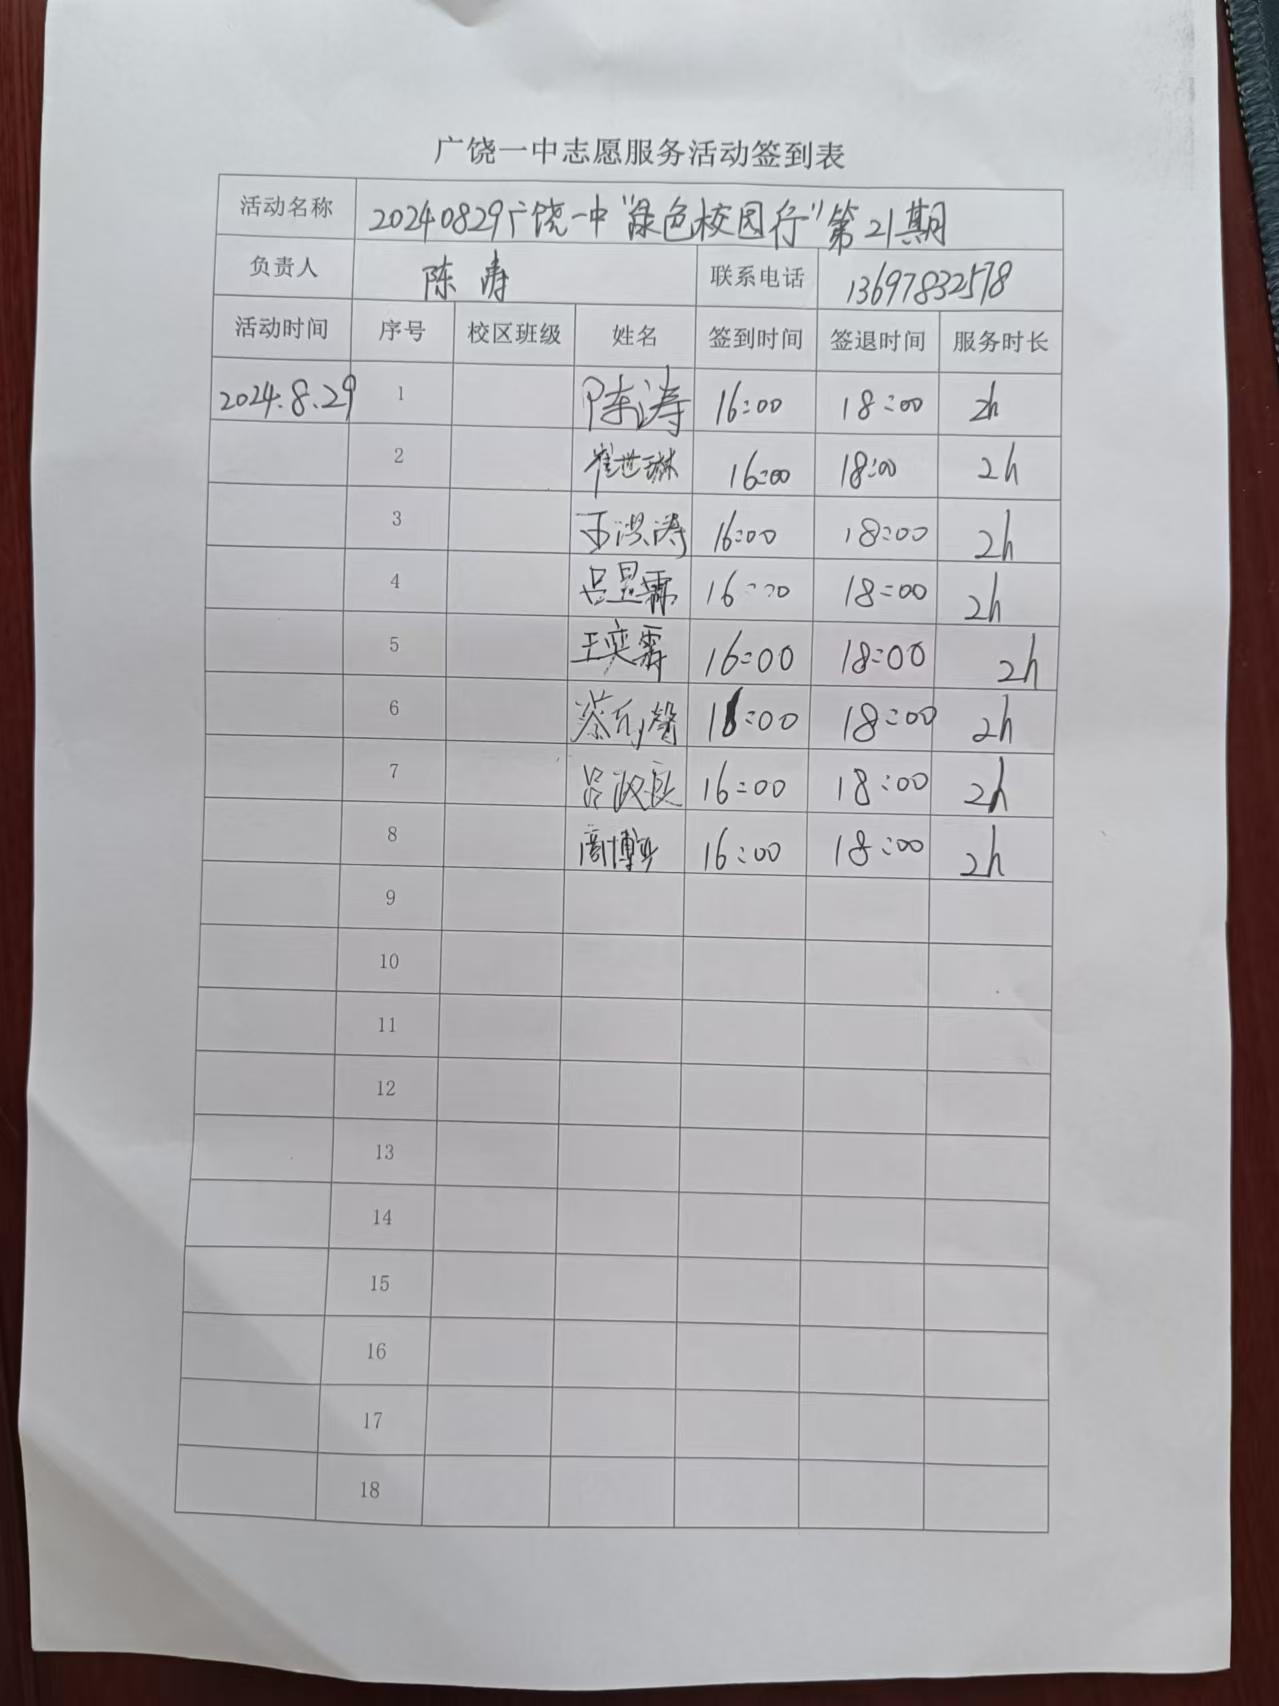 广饶一中志愿服务活动签到表
活动名称 20240829广饶一中“绿色校园行”第21期
负责人 陈涛 联系电话 13697832578
活动时间 序号 校区班级 姓名 签到时间 签退时间 服务时长
2024.8.29 1 陈涛 16:00 18:00 2h
2 崔世琳 16:00 18:00 2h
3 王洪涛 16:00 18:00 2h
4 吕昱霈 16:00 18:00 2h
5 王奕霏 16:00 18:00 2h
6 蔡 16:00 18:00 2h
7 吕政良 16:00 18:00 2h
8 商博 16:00 18:00 2h
9
10
11
12
13
14
15
16
17
18